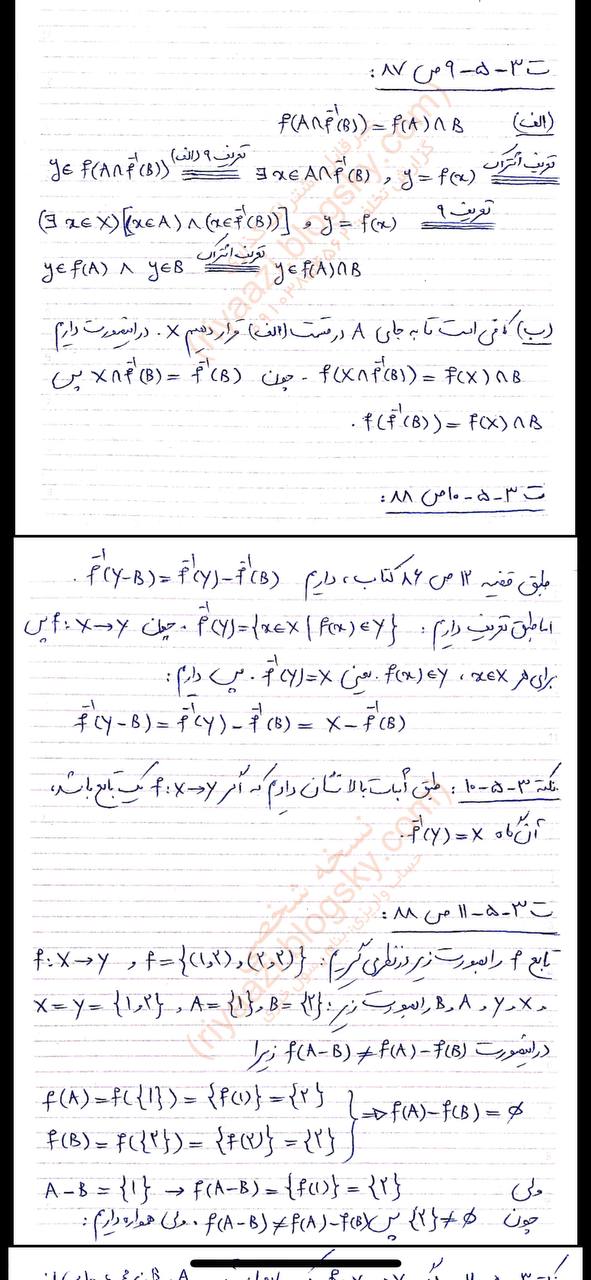 ت ۳-۵-۹ ص ۸۷:
(الف) f(A∩f⁻¹(B)) = f(A)∩B
y∈f(A∩f⁻¹(B)) تعریف ۹ (الف) ⟺ ∃x∈A∩f⁻¹(B), y=f(x) تعریف اشتراک ⟺
(∃x∈X)[(x∈A)∧(x∈f⁻¹(B))] و y=f(x) تعریف ۹ ⟺
y∈f(A) ∧ y∈B تعریف اشتراک ⟺ y∈f(A)∩B
(ب) کافی است تا به جای A در قسمت (الف) قرار دهیم X. دراینصورت داریم
f(X∩f⁻¹(B)) = f(X)∩B. چون X∩f⁻¹(B) = f⁻¹(B) پس
f(f⁻¹(B)) = f(X)∩B.
ت ۳-۵-۱۰ ص ۸۸:
طبق قضیه ۱۲ ص ۸۶ کتاب، داریم f⁻¹(Y-B) = f⁻¹(Y) - f⁻¹(B).
اما طبق تعریف داریم: f⁻¹(Y) = {x∈X | f(x)∈Y}. چون f: X→Y پس
برای هر x∈X، f(x)∈Y. یعنی f⁻¹(Y) = X. پس داریم:
f⁻¹(Y-B) = f⁻¹(Y) - f⁻¹(B) = X - f⁻¹(B)
نکته ۳-۵-۱۰: طبق اثبات بالا نشان دادیم که اگر f: X→Y یک تابع باشد،
آن گاه f⁻¹(Y) = X.
ت ۳-۵-۱۱ ص ۸۸:
تابع f را بصورت زیر در نظر می گیریم: f = {(۱,۲),(۲,۲)} و f: X→Y
و X، Y، A، B را بصورت زیر: X=Y={۱,۲}, A={۱}, B={۲}
دراینصورت f(A-B) ≠ f(A)-f(B) زیرا
f(A)=f({۱})={f(۱)}={۲}
f(B)=f({۲})={f(۲)}={۲} } ⇒ f(A)-f(B)=∅
ولی A-B={۱} → f(A-B)={f(۱)}={۲}
چون {۲}≠∅ پس f(A-B)≠f(A)-f(B). ولی همواره داریم:
نسخه شخصی
(riyaazi.blogsky.com)